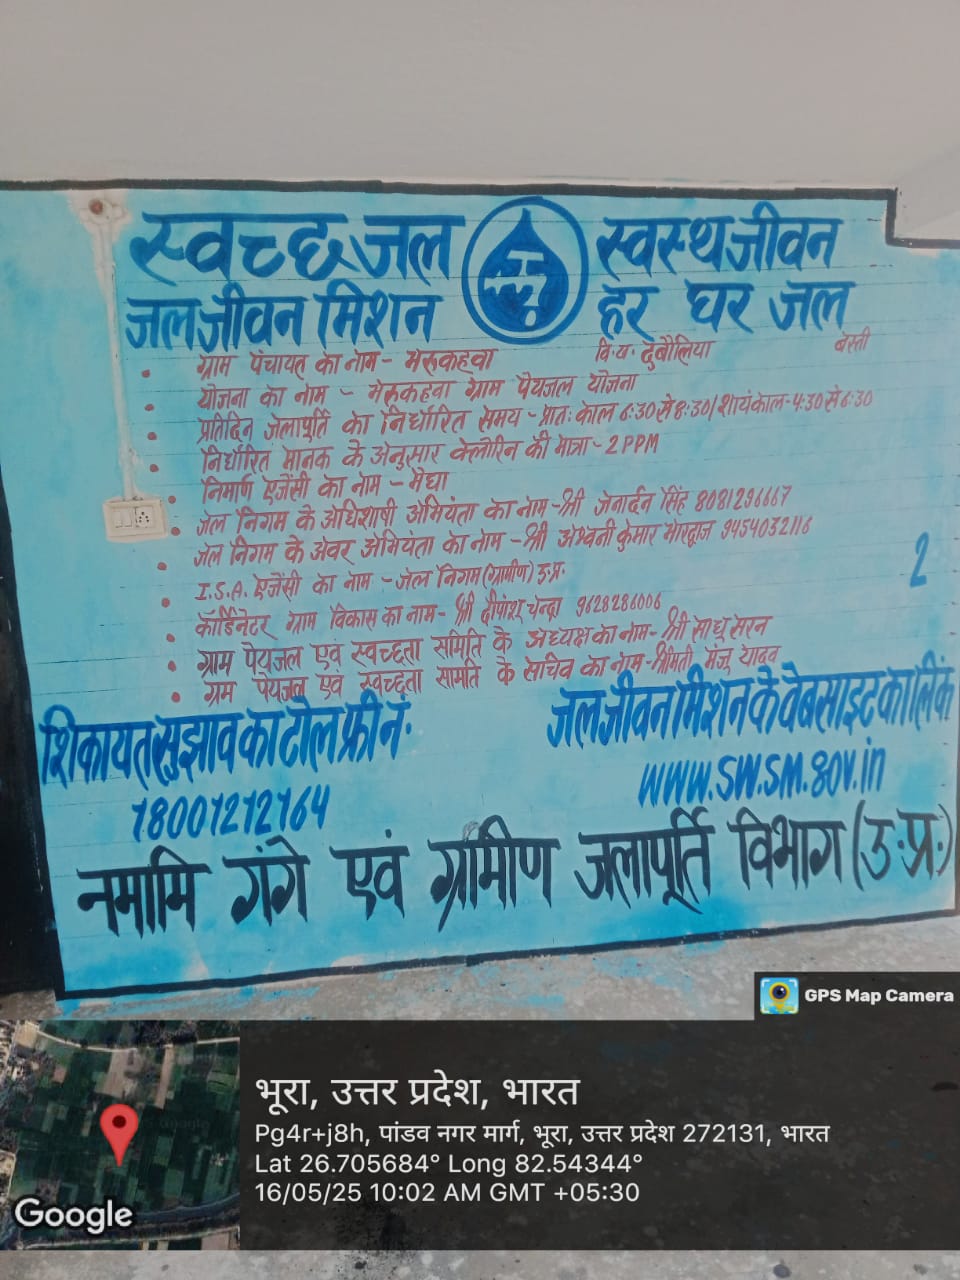 स्वच्छ जल स्वस्थ जीवन
जल जीवन मिशन हर घर जल
ग्राम पंचायत का नाम - मरुकहवा वि.ख. दुबौलिया बस्ती
योजना का नाम - मरुकहवा ग्राम पेयजल योजना
प्रतिदिन जलापूर्ति का निर्धारित समय - प्रातः काल 6:30 से 8:30/शायंकाल - 4:30 से 6:30
निर्धारित मानक के अनुसार क्लोरिन की मात्रा - 2 PPM
निर्माण एजेंसी का नाम - मेघा
जल निगम के अधिशाषी अभियंता का नाम - श्री जनार्दन सिंह 8081296667
जल निगम के अवर अभियंता का नाम - श्री अश्वनी कुमार भारद्वाज 9454032116
I.S.A. एजेंसी का नाम - जल निगम (ग्रामीण) उ.प्र.
कॉर्डिनेटर ग्राम विकास का नाम - श्री दीपांशू चन्द्रा 9628286006
ग्राम पेयजल एवं स्वच्छता समिति के अध्यक्ष का नाम - श्री साधू सरन
ग्रम पेयजल एवं स्वच्छता समिति के सचिव का नाम - श्रीमती मंजू यादव
2
शिकायत सुझाव का टोल फ्री नं.
18001212164
जल जीवन मिशन के वेबसाइट का लिंक
www.swsm.gov.in
नमामि गंगे एवं ग्रामीण जलापूर्ति विभाग (उ.प्र.)
GPS Map Camera
भूरा, उत्तर प्रदेश, भारत
Pg4r+j8h, पांडव नगर मार्ग, भूरा, उत्तर प्रदेश 272131, भारत
Lat 26.705684° Long 82.54344°
16/05/25 10:02 AM GMT +05:30
Google